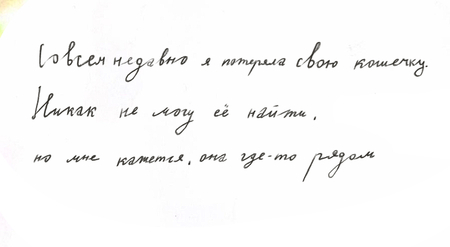 Совсем недавно я потеряла свою кошечку.
Никак не могу её найти,
но мне кажется, она где-то рядом